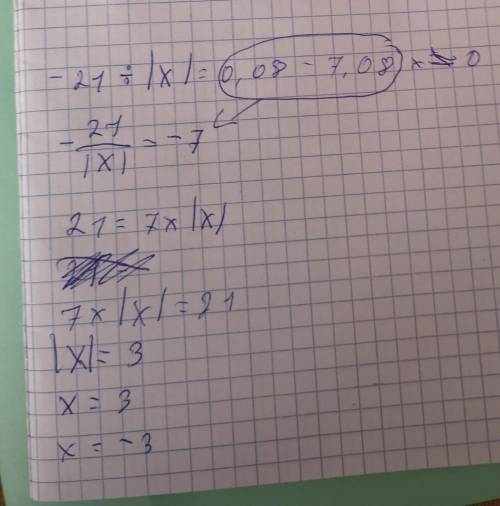 -21 ÷ |x| = 0,08 - 7,08 x ≠ 0
- 21/|x| = -7
21 = 7 x |x|
7 x |x| = 21
|x| = 3
x = 3
x = -3